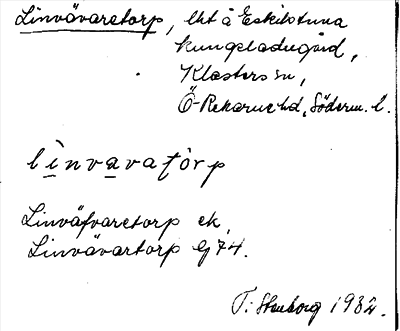 Linvävaretorp, lht å Eskilstuna
kungsladugård,
Klosters sn,
Ö-Rekarne hd, Söderm. l.
linvavatorp
Linväfvaretorp ek,
Linvävartorp Gj 74.
T: Stenborg 1932.